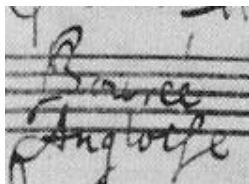 Bourée
Angloise